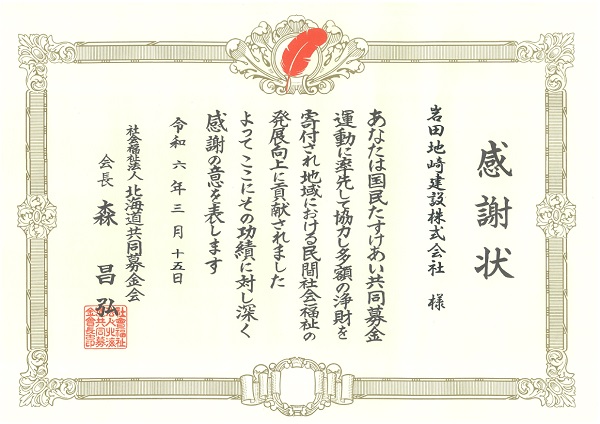 感謝状
岩田地崎建設株式会社 様
あなたは国民たすけあい共同募金
運動に率先して協力し多額の浄財を
寄付され地域における民間社会福祉の
発展向上に貢献されました
よってここにその功績に対し深く
感謝の意を表します
令和六年三月十五日
社会福祉法人 北海道共同募金会
会長 森 昌弘